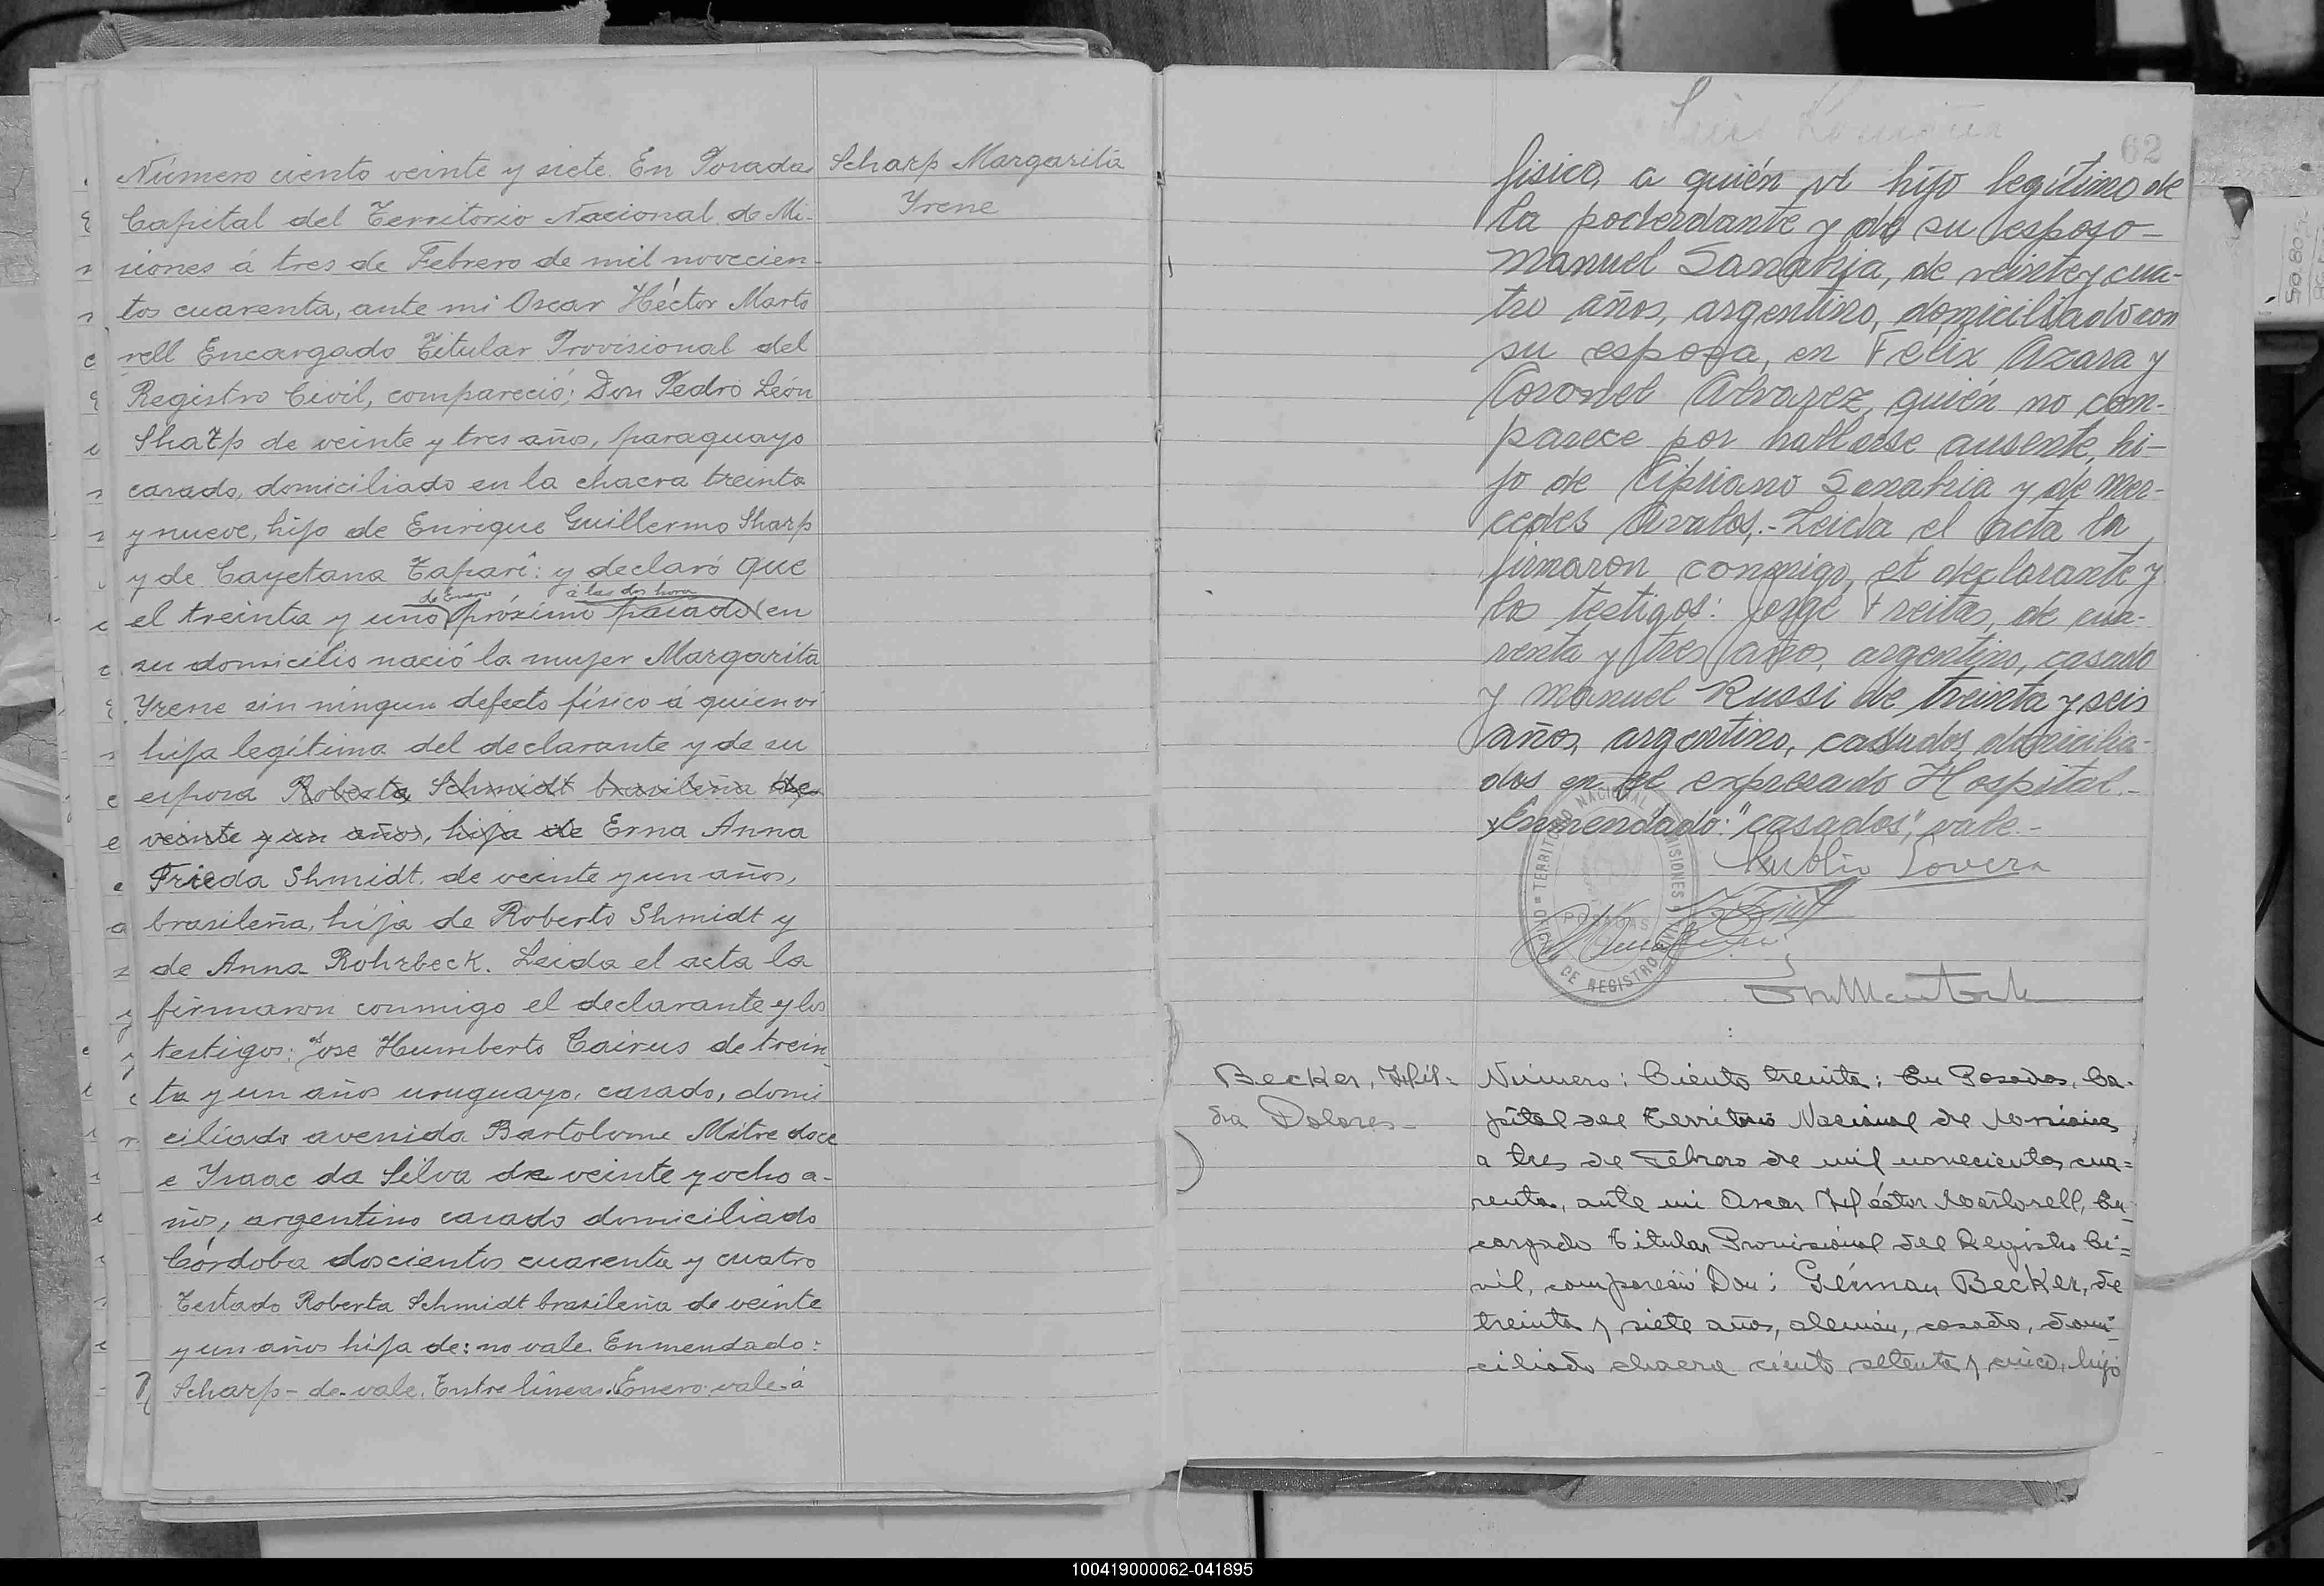 Scharp Margarita
Yrene
Número ciento veinte y siete. En Posadas
Capital del Territorio Nacional de Mi-
siones á tres de Febrero de mil novecien-
tos cuarenta, ante mi Oscar Héctor Marto
rell Encargado Titular Provisional del
Registro Civil, compareció; Don Pedro León
Sharp de veinte y tres años, paraguayo
casado, domiciliado en la chacra treinta
y nueve, hijo de Enrique Guillermo Sharp
y de Cayetana Taparí: y declaró que
de Enero á las dos hora
el treinta y uno próximo pasado en
su domicilio nació la mujer Margarita
Yrene sin ningun defecto físico á quien ví
hija legítima del declarante y de su
esposa Roberta Schmidt brasileña de
veinte y un años, hija de Erna Anna
Frieda Shmidt. de veinte y un años,
brasileña, hija de Roberto Shmidt y
de Anna Rohrbeck. Leida el acta la
firmaron conmigo el declarante y los
testigos: Jose Humberto Cairus de trein
ta y un años uruguayo, casado, domi
ciliado avenida Bartolome Mitre doce
e Ysaac da Silva de veinte y ocho a-
ños, argentino casado domiciliado
Córdoba doscientos cuarenta y cuatro
Testado Roberta Schmidt brasileña de veinte
y un años hija de: no vale. Enmendado:
Scharp - de - vale. Entre líneas. Enero vale á
62
fisico, a quién ví hijo legítimo de
la poderdante y de su esposo -
Manuel Sanabria, de veinte y cua-
tro años, argentino, domiciliado con
su esposa, en Félix Azara y
Coronel Alvarez, quién no com-
parece por hallarse ausente, hi-
jo de Cipriano Sanabria y de Mer-
cedes Avalos.- Leida el acta la
firmaron conmigo, el declarante y
los testigos: Jorge Freitas, de cua-
renta y tres años, argentino, casado
y Manuel Russi de treinta y seis
años, argentino, casados, domicilia-
dos en el expresado Hospital.-
Enmendado: "casados", vale.-
Publio Lovera
TERRITORIO NACIONAL MISIONES
POSADAS
DE REGISTRO
Becker, Hil-
da Dolores-
Número: Ciento treinta: En Posadas, Ca-
pital del Territorio Nacional de Misiones
a tres de Febrero de mil novecientos cua=
renta, ante mi Oscar Héctor Martorell, En-
cargado Titular Provisional del Registro Ci=
vil, compareció Don: Gérman Becker, de
treinta y siete años, alemán, casado, domi=
ciliado chacra ciento setenta y cinco, hijo
100419000062-041895